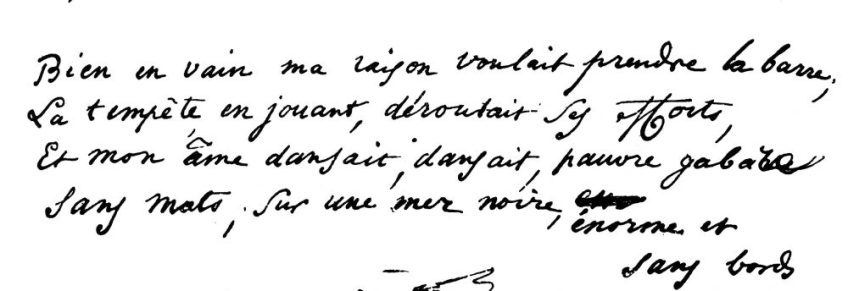 Bien en vain ma raison voulait prendre la barre;
La tempête, en jouant, déroutait ses efforts,
Et mon âme dansait, dansait, pauvre gabare
Sans mats, sur une mer noire,
énorme et
sans bords